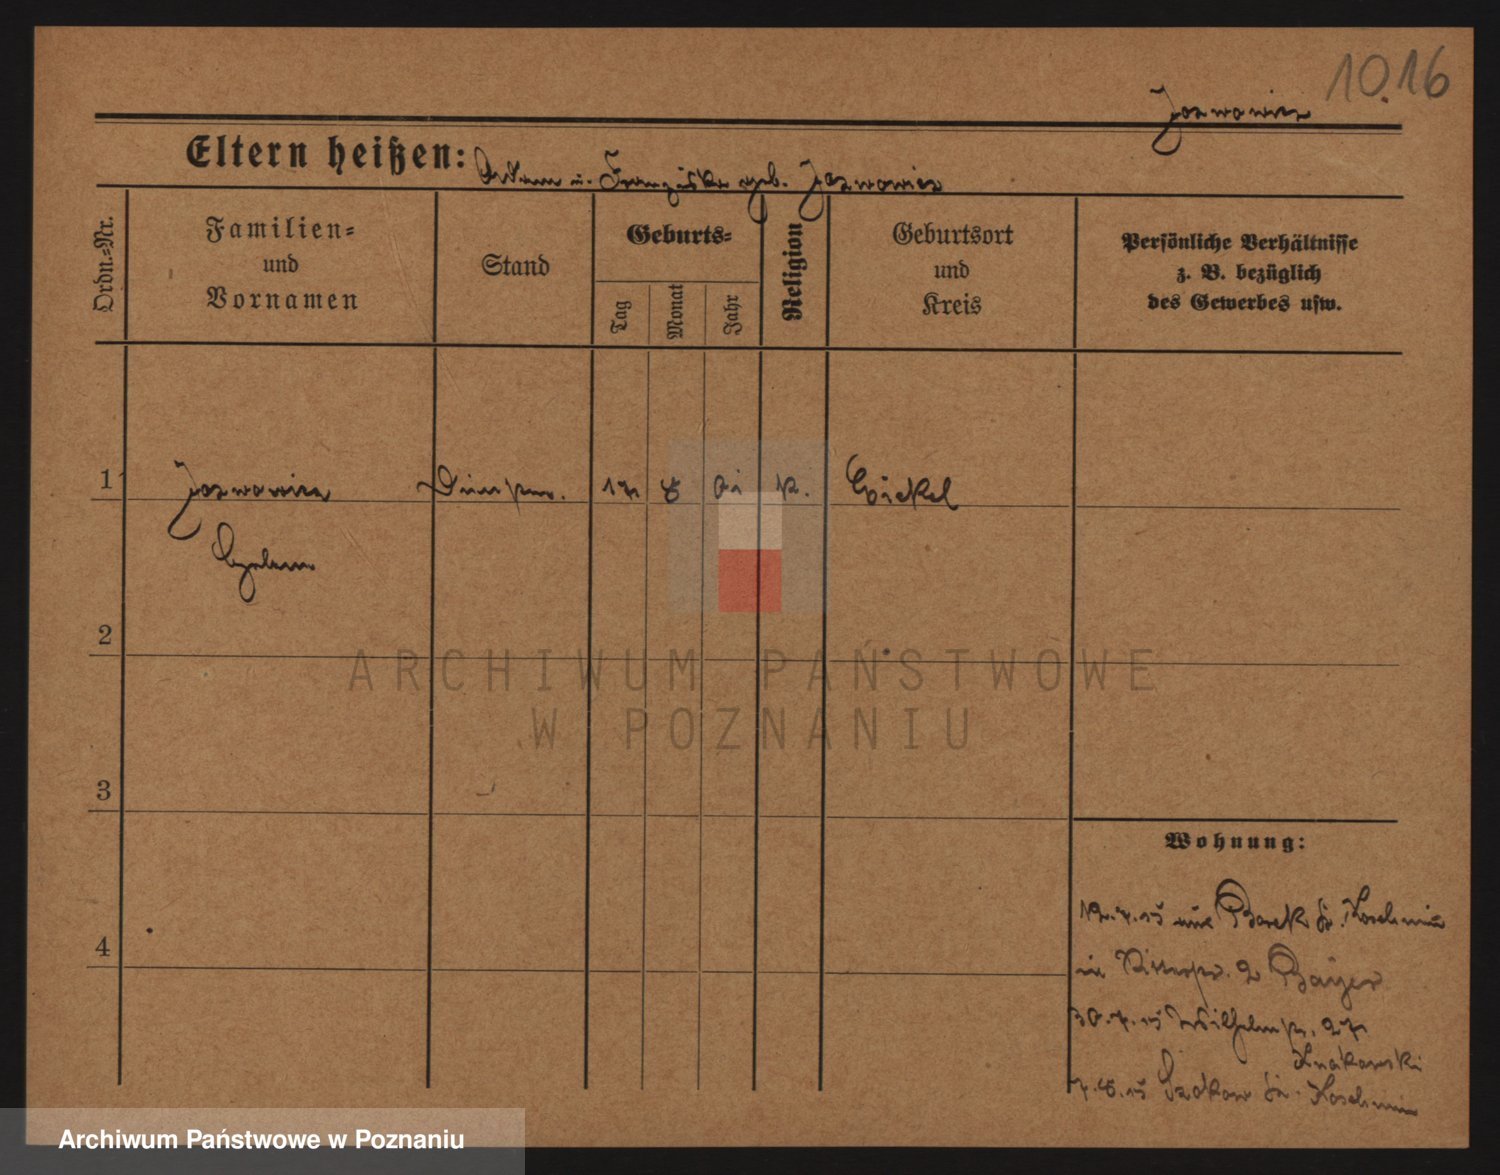 10.16
Joswowicz
Eltern heißen: Adam u. Franziska geb. Joswowicz
Ordn.=Nr.
Familien=
und
Vornamen
Stand
Geburts=
Tag
Monat
Jahr
Religion
Geburtsort
und
Kreis
Persönliche Verhältnisse
z. B. bezüglich
des Gewerbes usw.
1 Joswowicz 17 8 k. Eickel
2
3
4
Wohnung:
12.7.15 aus Borek Kr. Koschmin
in 2 Bayer
30.7.15 Wilhelmstr. 27
7.8.15 Kr. Koschmin
ARCHIWUM PAŃSTWOWE
W POZNANIU
Archiwum Państwowe w Poznaniu